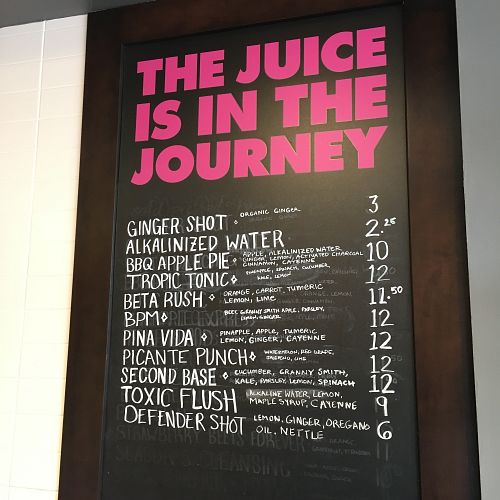 THE JUICE
IS IN THE
JOURNEY
GINGER SHOT ⋄ ORGANIC GINGER 3
ALKALINIZED WATER 2.25
BBQ APPLE PIE ⋄ APPLE, ALKALINIZED WATER 10
GINGER, LEMON, ACTIVATED CHARCOAL
CINNAMON, CAYENNE
TROPIC TONIC ⋄ PINEAPPLE, SPINACH, CUCUMBER, 12
KALE, LEMON
BETA RUSH ⋄ ORANGE, CARROT, TUMERIC 11.50
LEMON, LIME
BPM ⋄ BEET, GRANNY SMITH APPLE, PARSLEY, 12
LEMON, GINGER
PINA VIDA ⋄ PINEAPPLE, APPLE, TUMERIC 12
LEMON, GINGER, CAYENNE
PICANTE PUNCH ⋄ WATERMELON, RED GRAPE, 12
JALAPENO, LIME
SECOND BASE ⋄ CUCUMBER, GRANNY SMITH, 12
KALE, PARSLEY, LEMON, SPINACH
TOXIC FLUSH ALKALINE WATER, LEMON, 9
MAPLE SYRUP, CAYENNE
DEFENDER SHOT LEMON, GINGER, OREGANO 6
OIL, NETTLE
STRAWBERRY BEETS FOREVER
CLEANSING